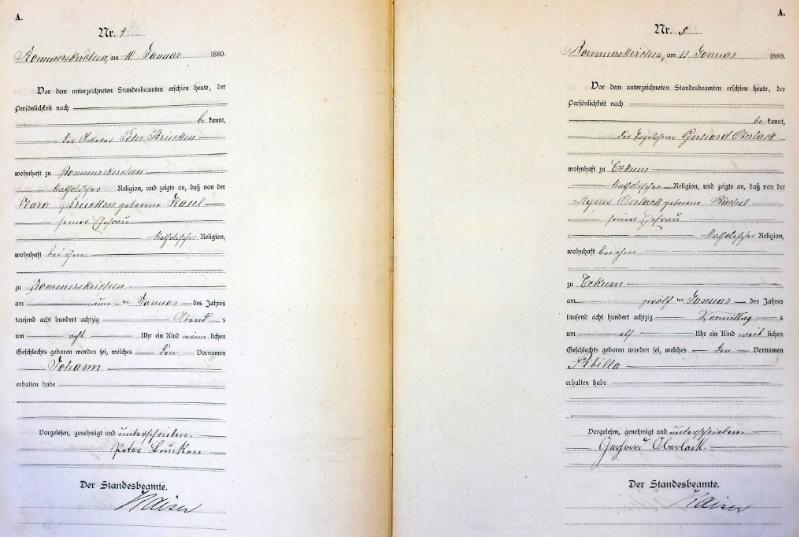 A.
Nr. 4
Rommerskirchen, am 10 Januar 1880.
Vor dem unterzeichneten Standesbeamten erschien heute, der
Persönlichkeit nach
be kannt,
der Peter Brücken
wohnhaft zu Rommerskirchen
katholischer Religion, und zeigte an, daß von der
Brücken geborene
seiner Ehefrau
katholischer Religion,
wohnhaft bei ihm
zu Rommerskirchen
am ten Januar des Jahres
tausend acht hundert achtzig Abend s
um acht Uhr ein Kind männ lichen
Geschlechts geboren worden sei, welches den Vornamen
Johann
erhalten habe
Vorgelesen, genehmigt und unterschrieben
Peter Brücken
Der Standesbeamte.
Kaiser
A.
Nr. 5
Rommerskirchen, am 13 Januar 1880.
Vor dem unterzeichneten Standesbeamten erschien heute, der
Persönlichkeit nach
be kannt,
der Gerhard Oberlack
wohnhaft zu Eckum
katholischer Religion, und zeigte an, daß von der
Agnes Oberlack geborene
seiner Ehefrau
katholischer Religion,
wohnhaft bei ihm
zu Eckum
am zwölf ten Januar des Jahres
tausend acht hundert achtzig Vormittag s
um elf Uhr ein Kind weib lichen
Geschlechts geboren worden sei, welches den Vornamen
Sibilla
erhalten habe
Vorgelesen, genehmigt und unterschrieben
Gerhard Oberlack
Der Standesbeamte.
Kaiser